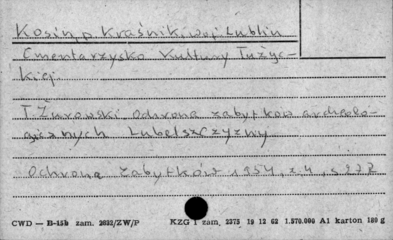 Kosin, p. Kraśnik, woj. Lublin
Cmentarzysko Kultury Łużyc-
kiej.
T. Żurowski Ochrona zabytków archeolo-
gicznych Lubelszczyzny
Ochrona Zabytków 1954, z 4, s 272
CWD — B-15b zam. 2632/ZW/P KZG 1 zam. 2375 19 12 62 1.570.000 A1 karton 180 g